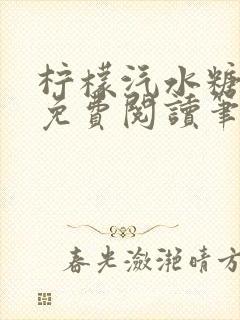 柠檬汽水糖
免费閱讀筆
春光潋滟晴方